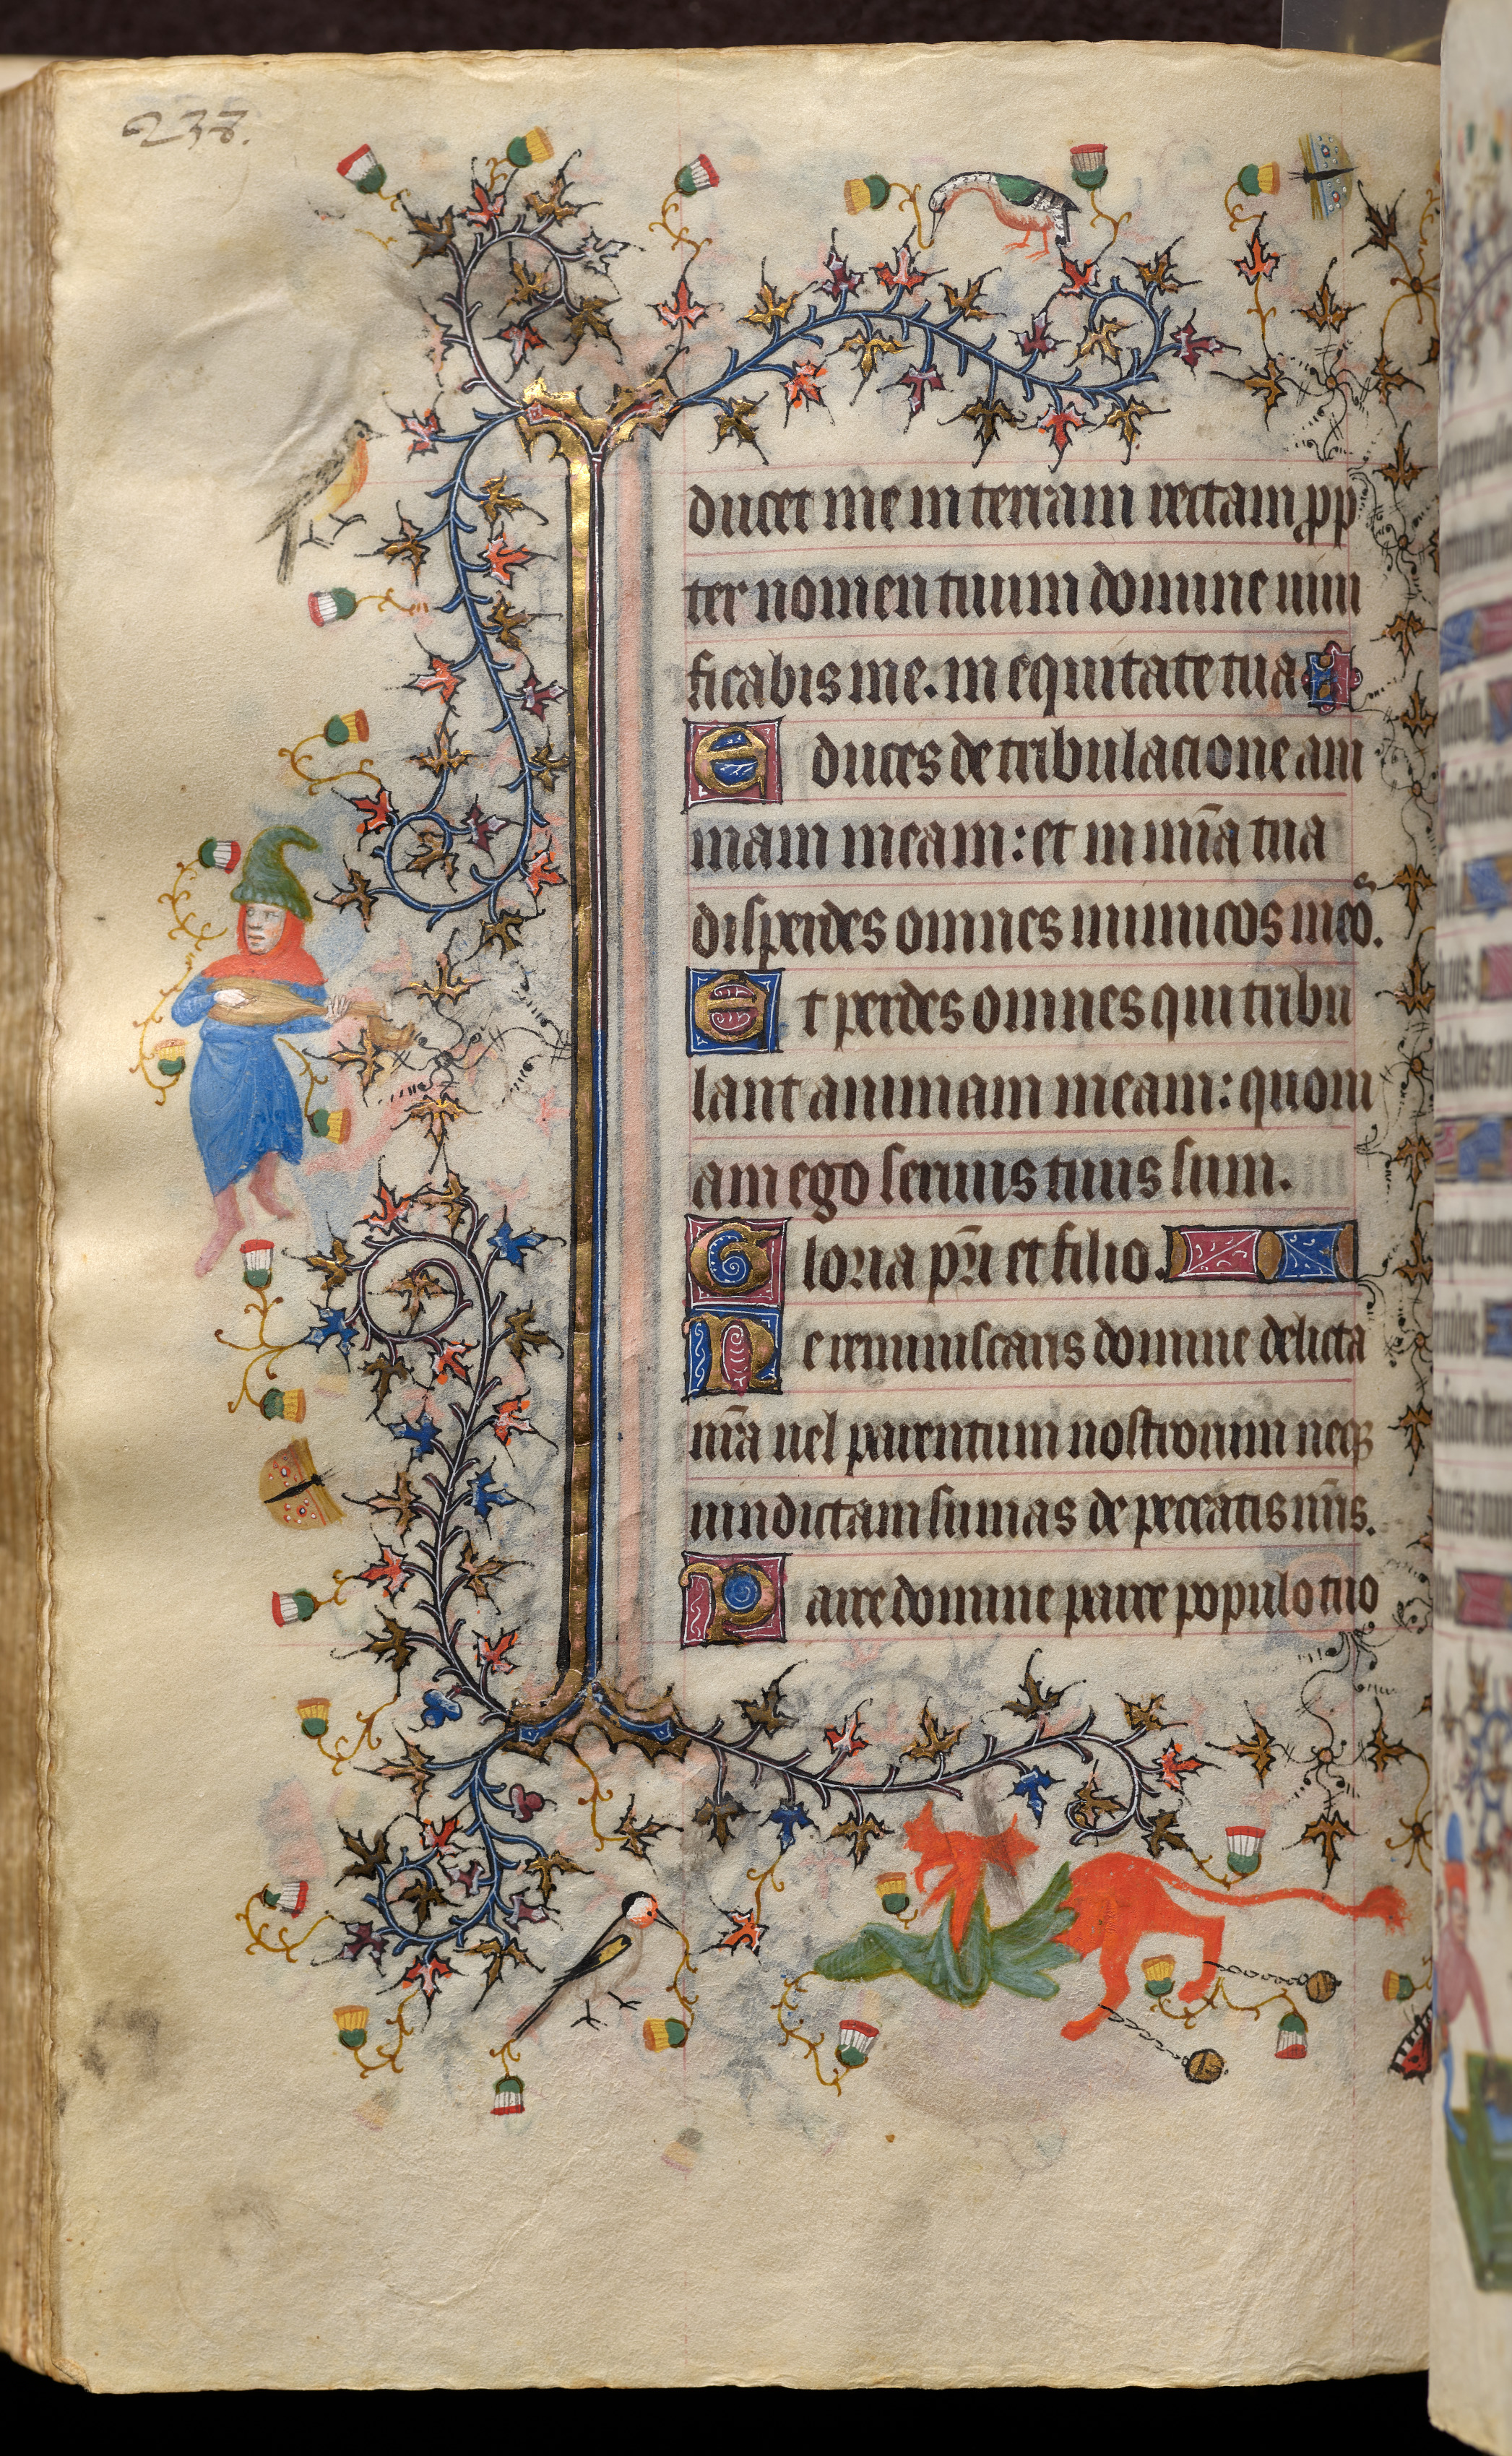 238.
ducet me in terram rectam ꝓp
ter nomen tuum domine uiui
ficabis me. in equitate tua
Educes de tribulacione ani
mam meam: et in mīa tua
disperdes omnes inimicos meōs.
Et perdes omnes qui tribu
lant animam meam: quoni
am ego seruus tuus sum.
Gloria pr̄i et filio.
Ne reminiscaris domine delicta
nr̄a uel parentum nostrorum neqꝫ
uindictam sumas de peccatis nr̄is.
Parce domine parce populo tuo